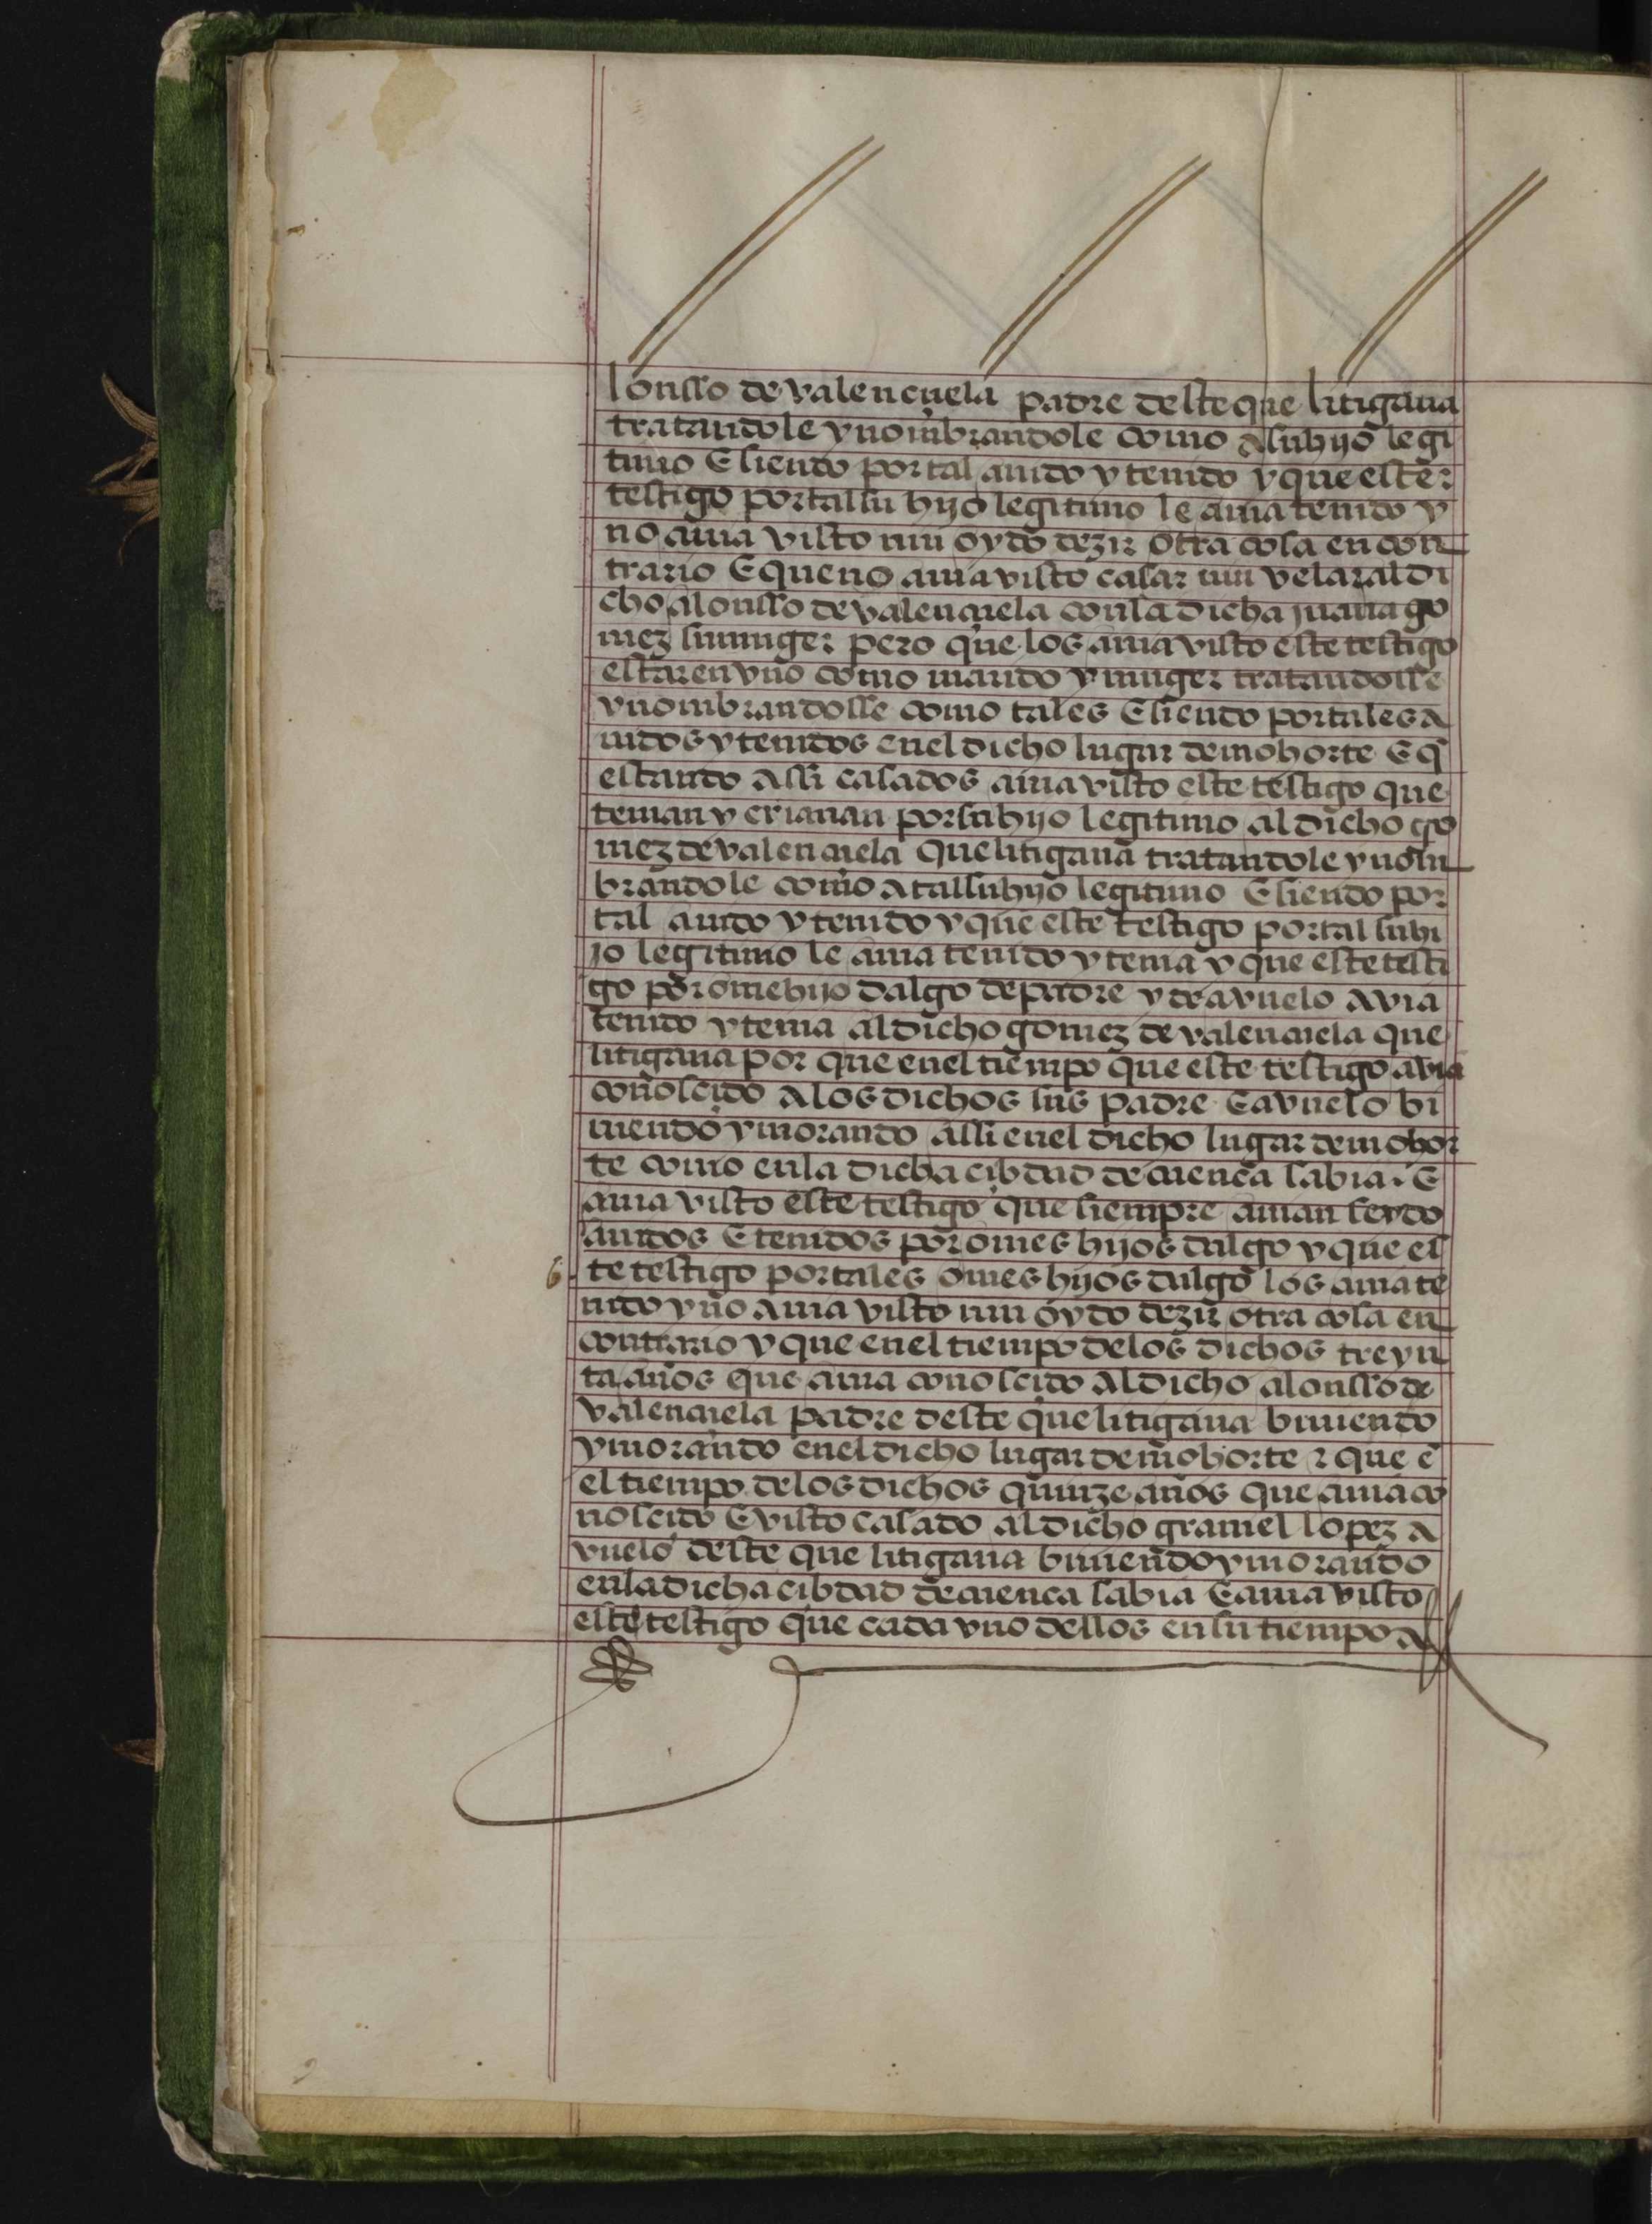 lonsso de valençuela padre deste que litigaua
tratandole y nombrandole como a su hijo legi
timo E siendo por tal auido y tenido y que este
testigo por tal su hijo legitimo le auia tenido y
no auia visto nin oydo dezir otra cosa en con
trario E que no auia visto casar nin velar al di
cho alonsso de valençuela con la dicha juana go
mez su muger pero que los auia visto este testigo
estar en vno como marido y muger tratandosse
y nombrandosse como tales E siendo por tales a
uidos y tenidos en el dicho lugar de mohorte E q̃
estando assi casados auia visto este testigo que
tenian y criauan por su hijo legitimo al dicho go
mez de valençuela que litigaua tratandole y nom
brandole como a tal su hijo legitimo E siendo por
tal auido y tenido y que este testigo por tal su hi
jo legitimo le auia tenido y tenia y que este testi
go por ome hijo dalgo de padre y de avuelo avia
tenido y tenia al dicho gomez de valençuela que
litigaua por que en el tiempo que este testigo avia
conoscido a los dichos sus padre E avuelo bi
uiendo y morando assi en el dicho lugar de mohor
te como en la dicha cibdad de cuenca sabia. E
auia visto este testigo que siempre auian seydo
auidos E tenidos por omes hijos dalgo y que es
te testigo por tales omes hijos dalgo los auia te
nido y no auia visto nin oydo dezir otra cosa en
contrario y que en el tiempo de los dichos treyn
ta años que auia conoscido al dicho alonsso de
valençuela padre deste que litigaua biuiendo
y morando en el dicho lugar de mohorte z que ẽ
el tiempo de los dichos quinze años que auia co
noscido E visto casado al dicho grauiel lopez a
vuelo deste que litigaua biuiendo y morando
en la dicha cibdad de cuenca sabia E auia visto
este testigo que cada vno dellos en su tiempo a